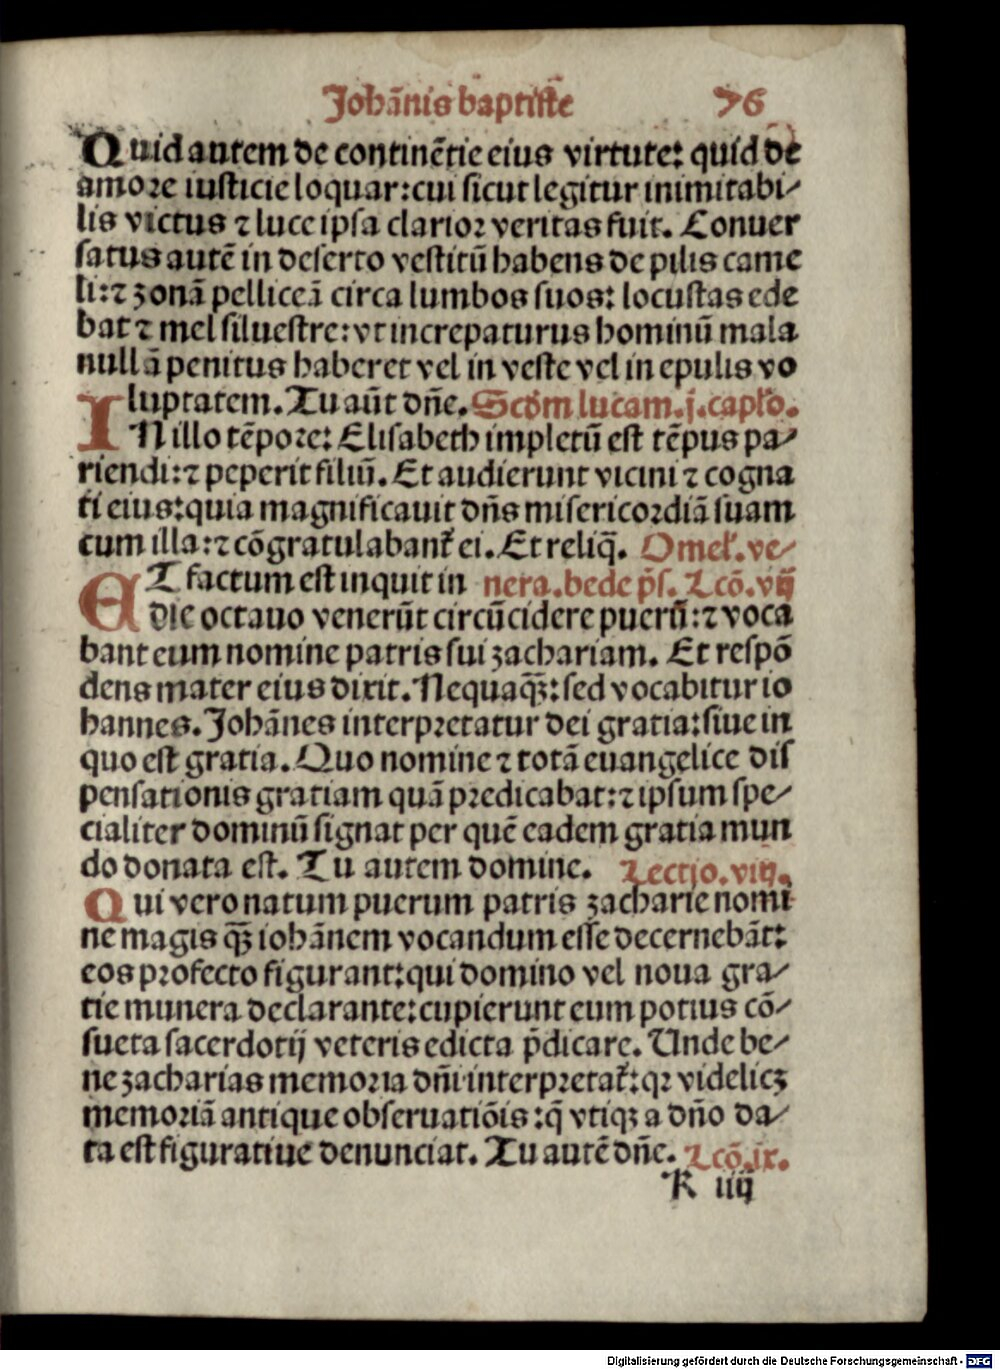 Johānis baptiste 76
Quid autem de continētie eius virtute: quid de
amore iusticie loquar: cui sicut legitur inimitabi⸗
lis victus ⁊ luce ipsa clarior veritas fuit. Conuer
satus autē in deserto vestitū habens de pilis came
li: ⁊ zonā pelliceā circa lumbos suos: locustas ede
bat ⁊ mel siluestre: vt increpaturus hominū mala
nullā penitus haberet vel in veste vel in epulis vo
luptatem. Tu aūt dn̄e. Scd̓m lucam. j. capl̓o.
IN illo tēpore: Elisabeth impletū est tēpus pa⸗
riendi: ⁊ peperit filiū. Et audierunt vicini ⁊ cogna
ti eius: quia magnificauit dn̄s misericordiā suam
cum illa: ⁊ cōgratulabant̉ ei. Et reliq̄. Omel̓. ve⸗
ET factum est inquit in nera. bede p̄s. Lcō. vij
die octauo venerūt circūcidere puerū: ⁊ voca
bant eum nomine patris sui zachariam. Et respō
dens mater eius dixit. Nequaq̄ꝫ: sed vocabitur io
hannes. Johānes interpretatur dei gratia: siue in
quo est gratia. Quo nomine ⁊ totā euangelice dis
pensationis gratiam quā predicabat: ⁊ ipsum spe⸗
cialiter dominū signat per quē eadem gratia mun
do donata est. Tu autem domine. Lectio. viij.
Qui vero natum puerum patris zacharie nomi
ne magis q̄ꝫ iohānem vocandum esse decernebāt:
eos profecto figurant: qui domino vel noua gra⸗
tie munera declarante: cupierunt eum potius cō⸗
sueta sacerdotij veteris edicta p̄dicare. Unde be⸗
ne zacharias memoria dn̄i interpretat̉: qꝛ videlicꝫ
memoriā antique obseruatiōis: q̄ vtiqꝫ a dn̄o da⸗
ta est figuratiue denunciat. Tu autē dn̄e. Lcō. ix.
K iiij
Digitalisierung gefördert durch die Deutsche Forschungsgemeinschaft - DFG